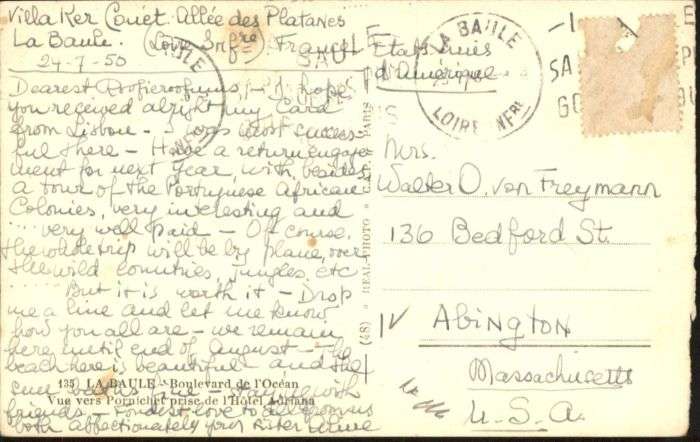 Villa Ker Couet. Allée des Platanes
La Baule. (Loire Infre) France
24-7-50
Dearest Poofieroofums, - I hope
you received alright my card
from Lisbon - I was most success-
ful there - Have a return engage-
ment for next year, with, besides,
a tour of the Portuguese African
Colonies, very interesting and
very well paid - Of course,
the whole trip will be by plane, over
the wild countries, jungles, etc
But it is worth it - Drop
me a line and let me know
how you all are - we remain
here until end of August - The
beach here is beautiful and the
sun baths - with
friends - Fondest love to all from us
both affectionately your
135) LA BAULE - Boulevard de l'Océan
Vue vers Pornichet prise de l'Hôtel Adriana
(48) REAL-PHOTO PARIS
Etats Unis
d'Amérique
LA BAULE
LOIRE INFRE
Mrs.
Walter O. von Freymann
136 Bedford St.
Abington
Massachusetts
U.S.A.